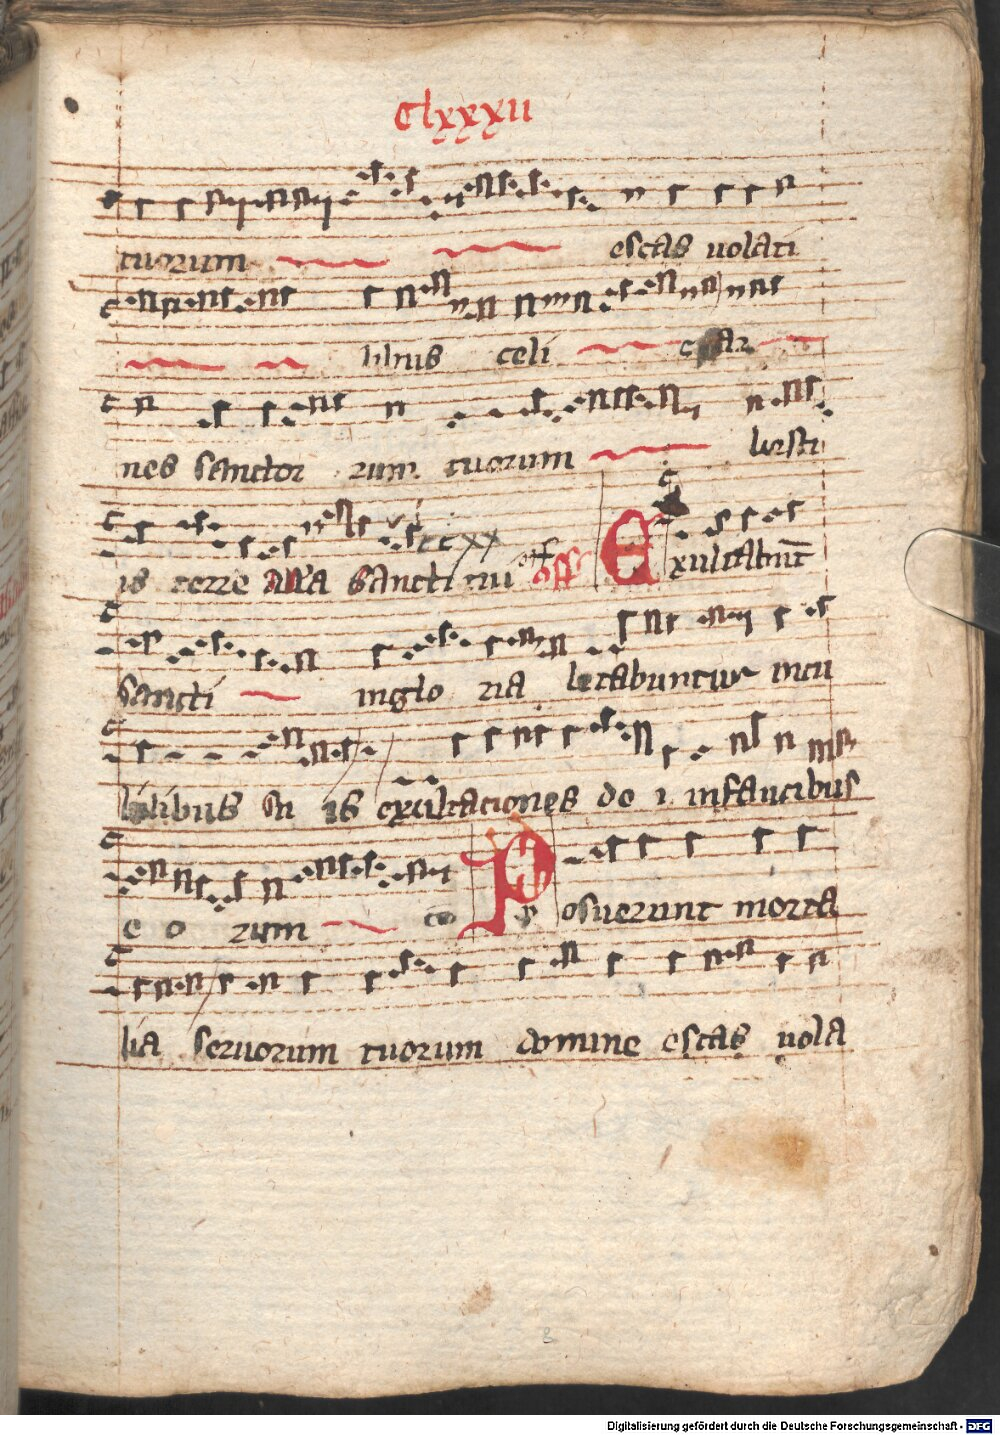 Clxxxii
tuorum escas uolati
libus celi car
nes sanctor rum tuorum besti
is terre alla sancti tui off off Exultabunt
Sancti in glo ria letabuntur in cu
bilibus su is exultaciones de i in faucibus
e o rum co Posuerunt morta
lia seruorum tuorum domine escas uola
Digitalisierung gefördert durch die Deutsche Forschungsgemeinschaft - DFG